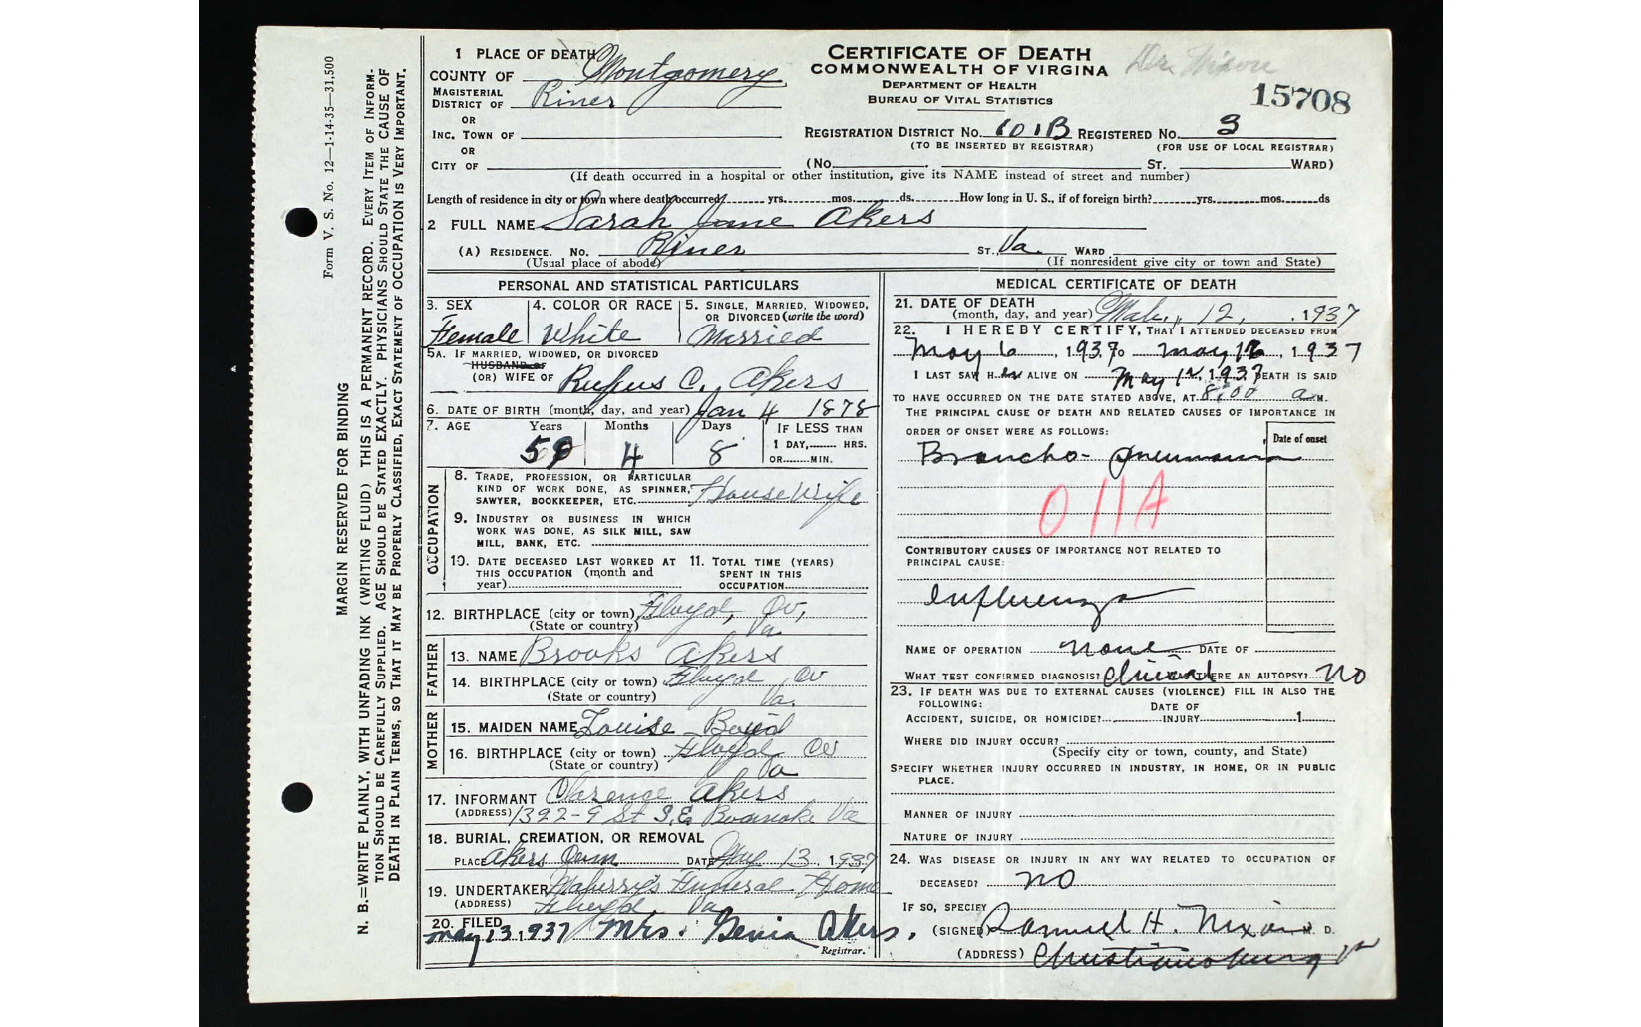 Form V. S. No. 12—1-14-35—31,500
MARGIN RESERVED FOR BINDING
N. B.=WRITE PLAINLY, WITH UNFADING INK (WRITING FLUID) THIS IS A PERMANENT RECORD. EVERY ITEM OF INFORMA-
TION SHOULD BE CAREFULLY SUPPLIED. AGE SHOULD BE STATED EXACTLY. PHYSICIANS SHOULD STATE THE CAUSE OF
DEATH IN PLAIN TERMS, SO THAT IT MAY BE PROPERLY CLASSIFIED. EXACT STATEMENT OF OCCUPATION IS VERY IMPORTANT.
CERTIFICATE OF DEATH
COMMONWEALTH OF VIRGINA
DEPARTMENT OF HEALTH
BUREAU OF VITAL STATISTICS
Dr. Nixon
15708
1 PLACE OF DEATH
COUNTY OF Montgomery
MAGISTERIAL DISTRICT OF Riner
OR
INC. TOWN OF
OR
CITY OF
REGISTRATION DISTRICT NO. 601B REGISTERED NO. 3
(TO BE INSERTED BY REGISTRAR) (FOR USE OF LOCAL REGISTRAR)
(No. ST. WARD)
(If death occurred in a hospital or other institution, give its NAME instead of street and number)
Length of residence in city or town where death occurred yrs. mos. ds. How long in U. S., if of foreign birth? yrs. mos. ds
2 FULL NAME Sarah Jane Akers
(A) RESIDENCE. No. Riner ST., Va. WARD
(Usual place of abode) (If nonresident give city or town and State)
PERSONAL AND STATISTICAL PARTICULARS
3. SEX Female
4. COLOR OR RACE White
5. SINGLE, MARRIED, WIDOWED, OR DIVORCED (write the word) Married
5A. IF MARRIED, WIDOWED, OR DIVORCED
HUSBAND OF
(OR) WIFE OF Rufus C. Akers
6. DATE OF BIRTH (month, day, and year) Jan 4 1878
7. AGE Years 59 Months 4 Days 8 IF LESS THAN
1 DAY, HRS.
OR MIN.
OCCUPATION
8. TRADE, PROFESSION, OR PARTICULAR
KIND OF WORK DONE, AS SPINNER, House Wife
SAWYER, BOOKKEEPER, ETC.
9. INDUSTRY OR BUSINESS IN WHICH
WORK WAS DONE, AS SILK MILL, SAW
MILL, BANK, ETC.
10. DATE DECEASED LAST WORKED AT THIS OCCUPATION (month and year)
11. TOTAL TIME (YEARS) SPENT IN THIS OCCUPATION
12. BIRTHPLACE (city or town) Floyd, Co,
(State or country) Va.
FATHER
13. NAME Brooks Akers
14. BIRTHPLACE (city or town) Floyd Co
(State or country) Va.
MOTHER
15. MAIDEN NAME Louise
16. BIRTHPLACE (city or town) Floyd Co
(State or country) Va
17. INFORMANT Clarence Akers
(ADDRESS) 1392-9 St S.E. Roanoke Va
18. BURIAL, CREMATION, OR REMOVAL
PLACE Akers Cem DATE May 13, 1937
19. UNDERTAKER Funeral Home
(ADDRESS) Floyd Va
20. FILED
May 13, 1937 Mrs. Akers.
Registrar.
MEDICAL CERTIFICATE OF DEATH
21. DATE OF DEATH
(month, day, and year) 12, , 1937
22. I HEREBY CERTIFY, THAT I ATTENDED DECEASED FROM
May 6, 1937 TO May 12, 1937
I LAST SAW HER ALIVE ON May 12, 1937 DEATH IS SAID
TO HAVE OCCURRED ON THE DATE STATED ABOVE, AT 8:00 a M.
THE PRINCIPAL CAUSE OF DEATH AND RELATED CAUSES OF IMPORTANCE IN
ORDER OF ONSET WERE AS FOLLOWS: Date of onset
Broncho-pneumonia
011A
CONTRIBUTORY CAUSES OF IMPORTANCE NOT RELATED TO
PRINCIPAL CAUSE:
Influenza
NAME OF OPERATION None DATE OF
WHAT TEST CONFIRMED DIAGNOSIS? Clinical WAS THERE AN AUTOPSY? No
23. IF DEATH WAS DUE TO EXTERNAL CAUSES (VIOLENCE) FILL IN ALSO THE
FOLLOWING: DATE OF
ACCIDENT, SUICIDE, OR HOMICIDE? INJURY 1
WHERE DID INJURY OCCUR?
(Specify city or town, county, and State)
SPECIFY WHETHER INJURY OCCURRED IN INDUSTRY, IN HOME, OR IN PUBLIC
PLACE.
MANNER OF INJURY
NATURE OF INJURY
24. WAS DISEASE OR INJURY IN ANY WAY RELATED TO OCCUPATION OF
DECEASED? No
IF SO, SPECIFY
(SIGNED) Samuel H. Nixon M. D.
(ADDRESS) Christiansburg Va